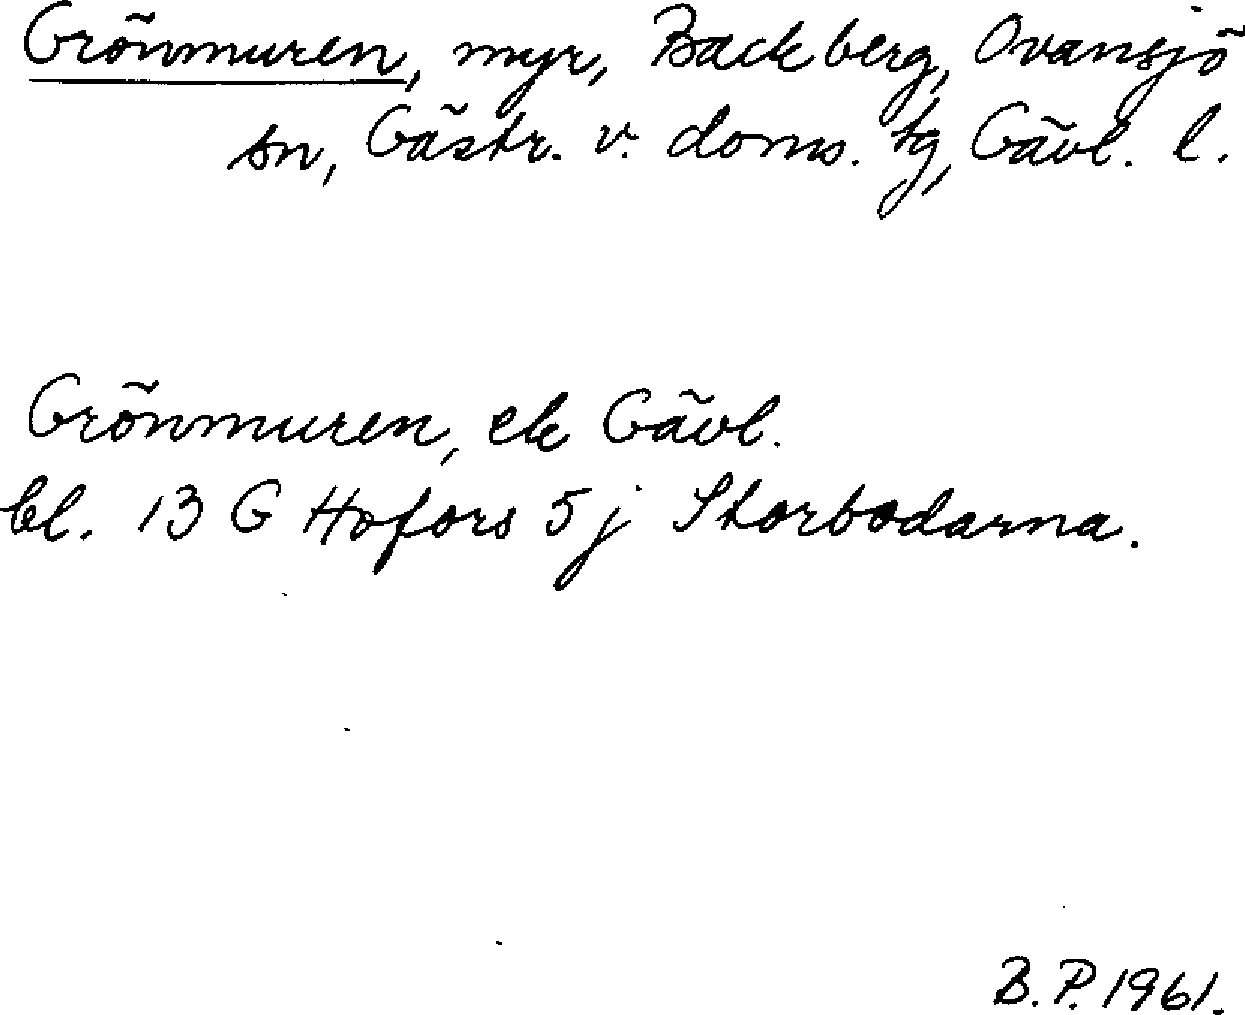 Grönmuren, myr, Backberg, Ovansjö
sn, Gästr. v. doms. tg, Gävl. l.
Grönmuren, ek Gävl.
bl. 13 G Hofors 5 j Storbodarna.
B. P. 1961.